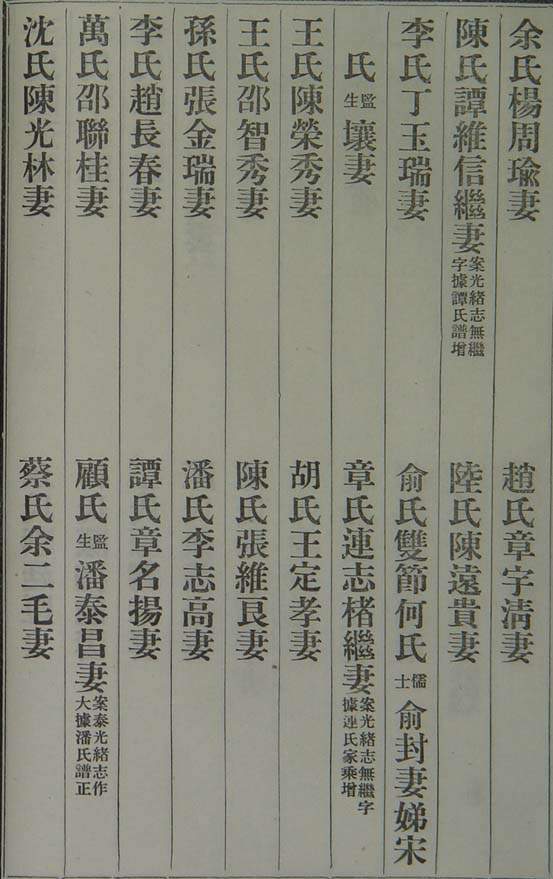 余氏楊周瑜妻 趙氏章宇淸妻
陳氏譚維信繼妻 案光緒志無繼字據譚氏譜增 陸氏陳遠貴妻
李氏丁玉瑞妻 俞氏雙節何氏 儒士 俞封妻娣宋
氏 監生 壤妻 章氏連志楮繼妻 案光緒志無繼字據連氏家乘增
王氏陳榮秀妻 胡氏王定孝妻
王氏邵智秀妻 陳氏張維艮妻
孫氏張金瑞妻 潘氏李志高妻
李氏趙長春妻 譚氏章名揚妻
萬氏邵聯桂妻 顧氏 監生 潘泰昌妻 案泰光緒志作大據潘氏譜正
沈氏陳光林妻 蔡氏余二毛妻